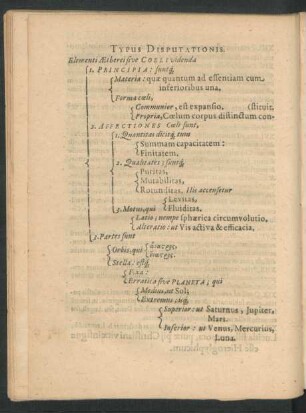 TYPUS DISPUTATIONIS.
Elementi Ætherei sive COELI videnda
1. PRINCIPIA: suntq́;
Materia: quæ quantum ad essentiam cum
inferioribus una,
Forma cœli,
Communior, est expansio. (stituit.
Propria, Cœlum corpus distinctum con-
2. AFFECTIONES Cœli sunt,
1. Quantitas
Summam capacitatem:
Finitatem.
2. Qualitates; suntq́;
Puritas,
Mutabilitas,
Rotunditas. His accensetur
Levitas,
Fluiditas.
3. Motus, qui
Latio; nempe sphærica circumvolutio,
Alteratio: ut Vis activa & efficacia.
3. Partes sunt
Orbis, qui
Stella: estq́;
Fixa:
Erratica sive PLANETA; qui
Medius, ut Sol;
Extremus, isq́;
Superior: ut Saturnus, Jupiter,
Mars.
Inferior: ut Venus, Mercurius,
Luna.